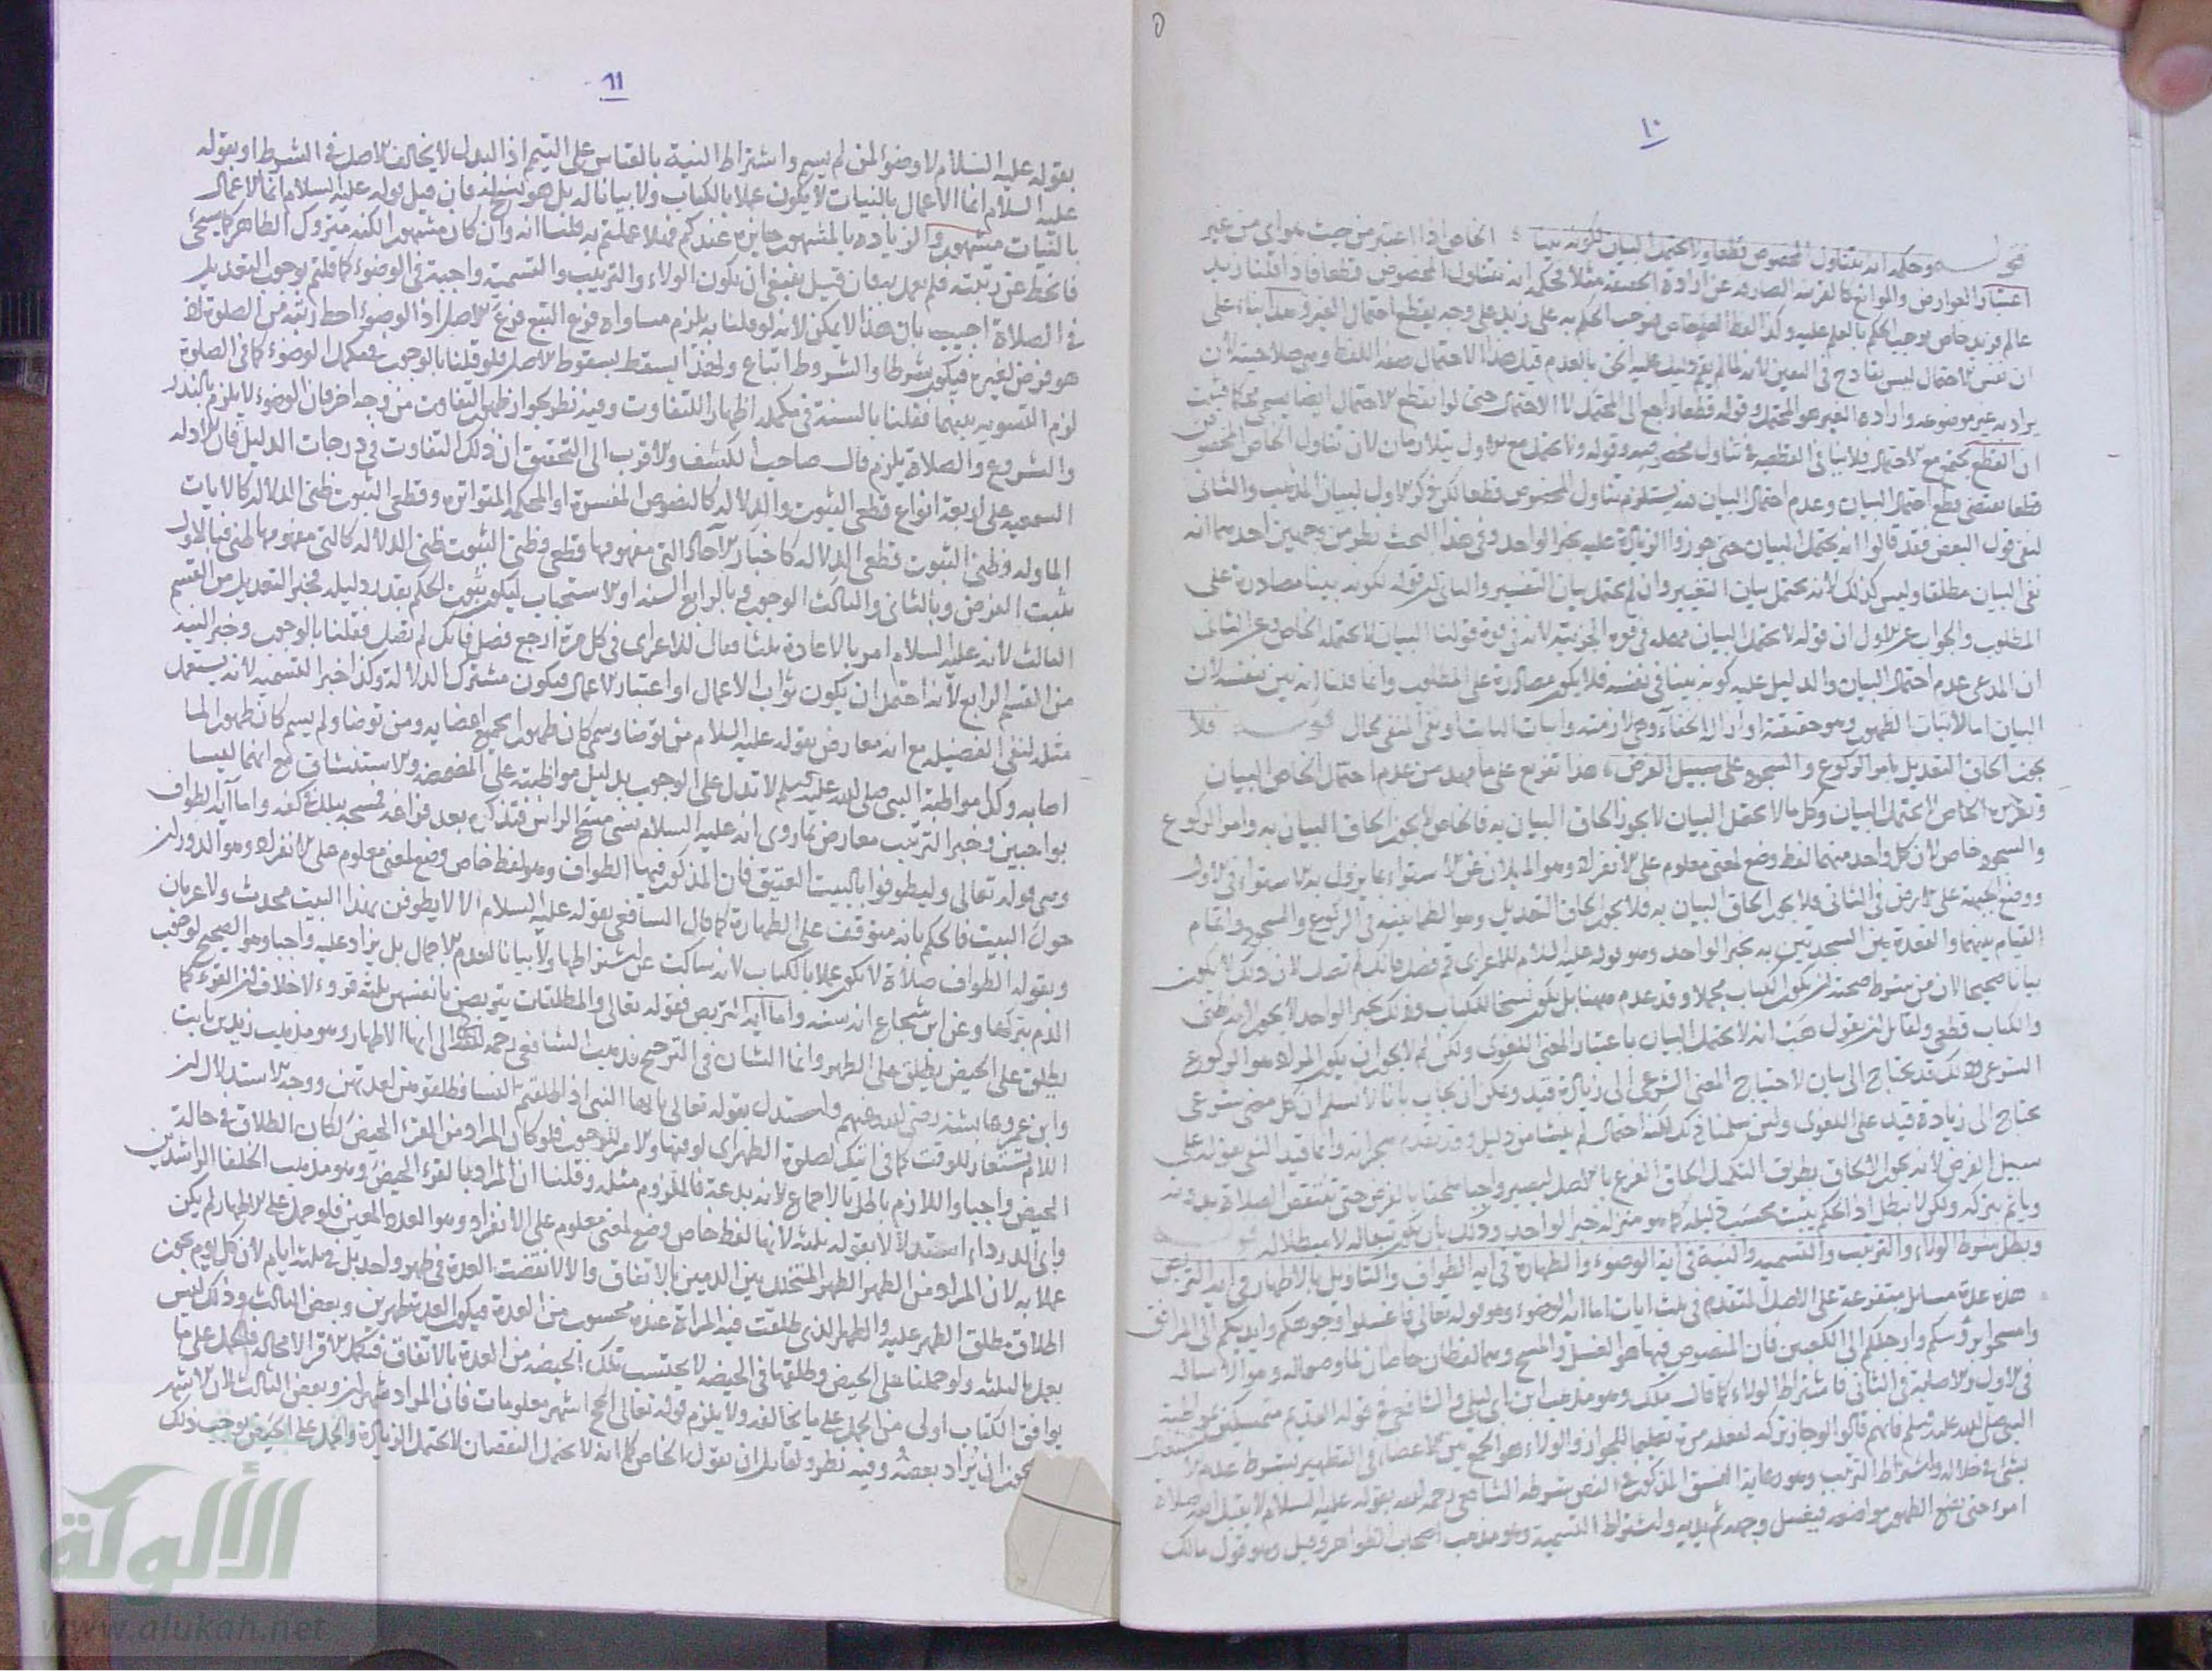 ١٠
قوله وحكمه ان يتناول المخصوص قطعا ولا يحتمل البيان لكونه بينا الخاص اذا اعتبر من حيث هو اى من غير
اعتبار العوارض والموانع كالقرينة الصارفة عن ارادة الحقيقة مثلا فحكمه ان يتناول المخصوص قطعا فاذا قلنا زيد
عالم فزيد خاص يوجب الحكم بالعلم عليه وكذا لفظ العلم خاص فيوجب الحكم به على زيد على وجه يقطع احتمال الغير وهذا بناء على
ان نفس الاحتمال ليس بقادح فى اليقين لانه لما لم يقم دليل عليه التحق بالعدم قيل هذا الاحتمال صفة اللفظ وهى صلاحيته لان
يراد به غير موضوعه وارادة الغير هو المحتمل وقوله قطعا راجع الى المحتمل لا الاحتمال حتى لو انقطع الاحتمال ايضا يسمى محكما فثبت
ان القطع يجتمع مع الاحتمال فلا ينافى القطعية فى تناول مخصوصه وقوله ولا يحتمل مع الاول يتلازمان لان تناول الخاص المخصوص
قطعا يقتضى قطع احتمال البيان وعدم احتمال البيان قد يستلزم تناول المخصوص قطعا لكن ذكر الاول لبيان المذهب والثانى
لنفى قول البعض فقد قالوا انه يحتمل البيان حتى جوزوا الزيادة عليه بخبر الواحد وفى هذا البحث نظر من وجهين احدهما انه
نفى البيان مطلقا وليس كذلك لانه يحتمل بيان التغيير وان لم يحتمل بيان التفسير والثانى ان قوله لكونه بينا مصادرة على
المطلوب والجواب عن الاول ان قوله لا يحتمل البيان مهملة فى قوة الجزئية لانه فى قوة قولنا البيان لا يحتمله الخاص وعن الثانى
ان المدعى عدم احتمال البيان والدليل عليه كونه بينا فى نفسه فلا يكون مصادرة على المطلوب وانما قلنا انه بين بنفسه لان
البيان اما لاثبات الظهور وهو حقيقته او ازالة الخفاء وهى لازمته واثبات الثابت ونفى المنفى محال قوله فلا
يجوز الحاق التعديل بامر الركوع والسجود على سبيل الفرض هذا تفريع على ما مهد من عدم احتمال الخاص البيان
وتقريره الخاص لا يحتمل البيان وكل ما لا يحتمل البيان لا يجوز الحاق البيان به فالخاص لا يجوز الحاق البيان به وامر الركوع
والسجود خاص لان كل واحد منهما لفظ وضع لمعنى معلوم على الانفراد وهو الميلان عن الاستواء بما يزول به الاستواء فى الاول
ووضع الجبهة على الارض فى الثانى فلا يجوز الحاق البيان به فلا يجوز الحاق التعديل وهو الطمانينة فى الركوع والسجود واتمام
القيام بينهما والقعدة بين السجدتين به بخبر الواحد وهو قوله عليه السلام للاعرابى قم فصل فانك لم تصل لان ذلك لا يكون
بيانا صحيحا لان من شرط صحته ان يكون الكتاب مجملا وقد عدم ههنا بل يكون نسخا للكتاب وذلك بخبر الواحد لا يجوز لانه ظنى
والكتاب قطعى ولقائل ان يقول هب انه لا يحتمل البيان باعتبار المعنى اللغوى ولكن لم لا يجوز ان يكون المراد هو الركوع
الشرعى وذلك قد يحتاج الى بيان لاحتياج المعنى الشرعى الى زيادة قيد ويمكن ان يجاب بانا لا نسلم ان كل معنى شرعى
يحتاج الى زيادة قيد على اللغوى ولئن سلمنا ذلك لكنه احتمال لم ينشا من دليل وقد تقدم وانما قيد النفى بقوله على
سبيل الفرض لانه يجوز الالحاق بطريق التكميل الحاق الفرع بالاصل ليصير واجبا ملحقا بالفرض حتى تنتقص الصلاة بدونه
وياثم بتركه ولكن لا تبطل اذ الحكم يثبت بحسب دليله كما هو منزلة خبر الواحد وذلك بان يكون تبعا له لا مبطلا له قوله
وبطل شرط الولاء والترتيب والتسمية والنية فى اية الوضوء والطهارة فى اية الطواف والتاويل بالاطهار فى اية التربص
هذه عدة مسائل متفرعة على الاصل المتقدم فى ثلث ايات اما اية الوضوء وهو قوله تعالى فاغسلوا وجوهكم وايديكم الى المرافق
وامسحوا برؤسكم وارجلكم الى الكعبين فان المنصوص فيها هو الغسل والمسح وهما لفظان خاصان لما وضعا له وهو الاسالة
فى الاول والاصابة فى الثانى فاشتراط الولاء كما قال ملك وهو مذهب ابن ابى ليلى والشافعى فى قوله القديم متمسكين بمواظبة
النبى صلى الله عليه وسلم فانهم قالوا لو جاز تركه لفعله مرة تعليما للجواز والولاء هو الجمع بين الاعضاء فى التطهير بشرط عدم
بشىء خلاله واشتراط الترتيب وهو رعاية النسق المذكور فى النص بشرطه الشافعى رحمه الله بقوله عليه السلام لا يقبل الله صلاة
امرء حتى يضع الطهور مواضعه فيغسل وجهه ثم يديه واشتراط التسمية وهو مذهب اصحاب الظواهر وقيل وهو قول مالك
١١
بقوله عليه السلام لا وضوء لمن لم يسم واشتراط النية بالقياس على التيمم اذ البدل لا يخالف الاصل فى الشرط او بقوله
عليه السلام انما الاعمال بالنيات لا يكون عملا بالكتاب ولا بيانا له بل هو نسخ له فان قيل قوله عليه السلام انما الاعمال
بالنيات مشهور والزيادة بالمشهور جايزة عندكم فهلا عملتم به قلنا انه وان كان مشهورا لكنه متروك الظاهر كما سيجىء
فانحط عن رتبته فلم نعمل به فان قيل ينبغى ان يكون الولاء والترتيب والتسمية واجبة فى الوضوء كما قلتم بوجوب التعديل
فى الصلاة اجيب بان هذا لا يمكن لانه لو قلنا به يلزم مساواة فرع التبع فرع الاصل اذ الوضوء احط رتبة من الصلوة لانه
هو فرض لغيره فيكون شرطا والشروط اتباع ولهذا يسقط بسقوط الاصل فلو قلنا بالوجوب فى مكمل الوضوء كما فى الصلوة
لزم التسوية بينهما فقلنا بالسنة فى مكمله اظهارا للتفاوت وفيه نظر لجواز ظهور التفاوت من وجه اخر فان الوضوء لا يلزم بالنذر
والشروع والصلاة يلزم قال صاحب الكشف والاقرب الى التحقيق ان ذلك التفاوت فى درجات الدليل فان الادلة
السمعية على اربعة انواع قطعى الثبوت والدلالة كالنصوص المفسرة او المحكمة المتواترة وقطعى الثبوت ظنى الدلالة كالايات
الماولة وظنى الثبوت قطعى الدلالة كاخبار الآحاد التى مفهومها قطعى وظنى الثبوت ظنى الدلالة كالتى مفهومها ظنى فبالاول
يثبت الفرض وبالثانى والثالث الوجوب وبالرابع السنة او الاستحباب ليكون ثبوت الحكم بقدر دليله فخبر التعديل من القسم
الثالث لانه عليه السلام امر بالاعادة ثلثا فقال للاعرابى فى كل مرة ارجع فصل فانك لم تصل فقلنا بالوجوب وخبر النية
من القسم الرابع لانه احتمل ان يكون ثواب الاعمال او اعتبار الاعمال فيكون مشترك الدلالة وكذا خبر التسمية لانه يستعمل
مثله لنفى الفضيلة مع انه معارض بقوله عليه السلام من توضا وسمى كان طهورا لجميع اعضايه ومن توضا ولم يسم كان طهورا لما
اصابه وكذا مواظبة النبى صلى الله عليه وسلم لا تدل على الوجوب بدليل مواظبته على المضمضة والاستنشاق مع انهما ليسا
بواجبين وخبر الترتيب معارض بما روى انه عليه السلام نسى مسح الراس فتذكر بعد فراغه فمسحه ببلل كفه واما آية الطواف
وهى قوله تعالى وليطوفوا بالبيت العتيق فان المذكور فيها الطواف وهو لفظ خاص وضع لمعنى معلوم على الانفراد وهو الدوران
حول البيت فالحكم بانه متوقف على الطهارة كما قال الشافعى بقوله عليه السلام الا لا يطوفن بهذا البيت محدث ولا عريان
وبقوله الطواف صلاة لا يكون عملا بالكتاب لانه ساكت عن اشتراطها ولا بيانا لعدم الاجمال بل يزاد عليه واجبا وهو الصحيح لوجوب
الدم بتركها وعن ابن شجاع انه سنة واما آية التربص فقوله تعالى والمطلقات يتربصن بانفسهن ثلثة قروء لا خلاف ان القرء كما
يطلق على الحيض يطلق على الطهر وانما الشان فى الترجيح فذهب الشافعى رحمه الله الى انها الاطهار وهو مذهب زيد بن ثابت
وابن عمر وعايشة رضى الله عنهم واستدل بقوله تعالى يا ايها النبى اذا طلقتم النسا فطلقوهن لعدتهن ووجه الاستدلال ان
اللام تستعار للوقت كما فى اتيك لصلوة الظهر اى لوقتها والامر للوجوب فلو كان المراد من القرء الحيض لكان الطلاق فى حالة
الحيض واجبا واللازم باطل بالاجماع لانه بدعة فالملزوم مثله وقلنا ان المراد بالقرء الحيض وهو مذهب الخلفا الراشدين
وابى الدرداء استدلالا بقوله ثلثة لانها لفظ خاص وضع لمعنى معلوم على الانفراد وهو العدد المعين فلو حمل على الاطهار لم يكن
عملا به لان المراد من الطهر الطهر المتخلل بين الدمين بالاتفاق والا لانقضت العدة فى طهر واحد بل فى ثلثة ايام لان كل يوم يجوز
اطلاق مطلق الطهر عليه والطهر الذى طلقت فيه المراة عنده محسوب من العدة فيكون العدة طهرين وبعض الثالث وذلك ليس
بعمل بالثلثة ولو حملنا على الحيض وطلقها فى الحيض لا يحتسب تلك الحيضة من العدة بالاتفاق فتكمل الاقراء لا محالة فالحمل على ما
يوافق الكتاب اولى من الحمل على ما يخالفه ولا يلزم قوله تعالى الحج اشهر معلومات فان المراد شهران وبعض الثالث لان الاشهر
يجوز ان يراد بعضه وفيه نظر ولقائل ان يقول الخاص كما انه لا يحتمل النقصان لا يحتمل الزيادة والحمل على الحيض يوجب ذلك
الألوكة
www.alukah.net